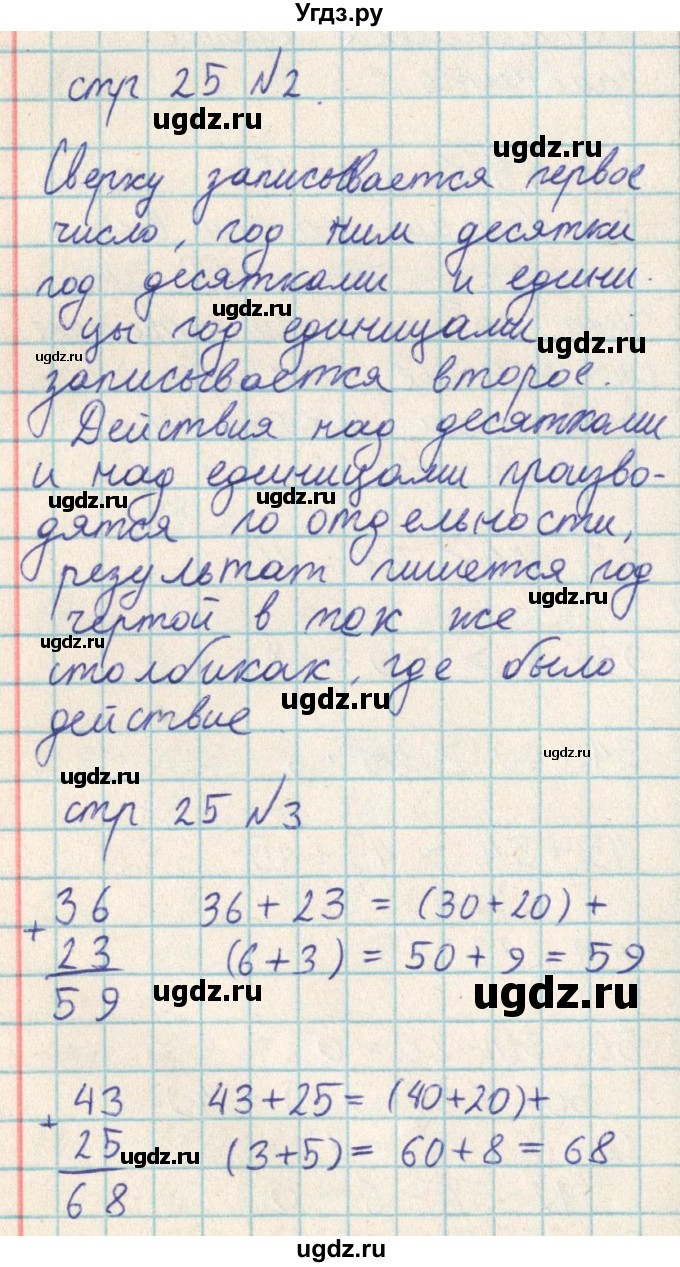 Угдз.ру
стр 25 №2.
ugdz.ru
ugdz.ru
Сверху записывается первое
число, под ним десятки
под десятками и едини
ugdz.ru
цы под единицами
ugdz.ru
ugdz.ru
записывается второе.
Действия над десятками
и над единицами произво-
ugdz.ru
ugdz.ru
дятся по отдельности,
результат пишется под
ugdz.ru
чертой в тех же
ugdz.ru
столбиках, где было
ugdz.ru
действие
ugdz.ru
ugdz.ru
стр 25 №3
36 36 + 23 = (30+20) +
+
23 (6+3) = 50 + 9 = 59
59
ugdz.ru
ugdz.ru
43 43 + 25 = (40+20) +
+
25 (3+5) = 60 + 8 = 68
ugdz.ru
68
ugdz.ru